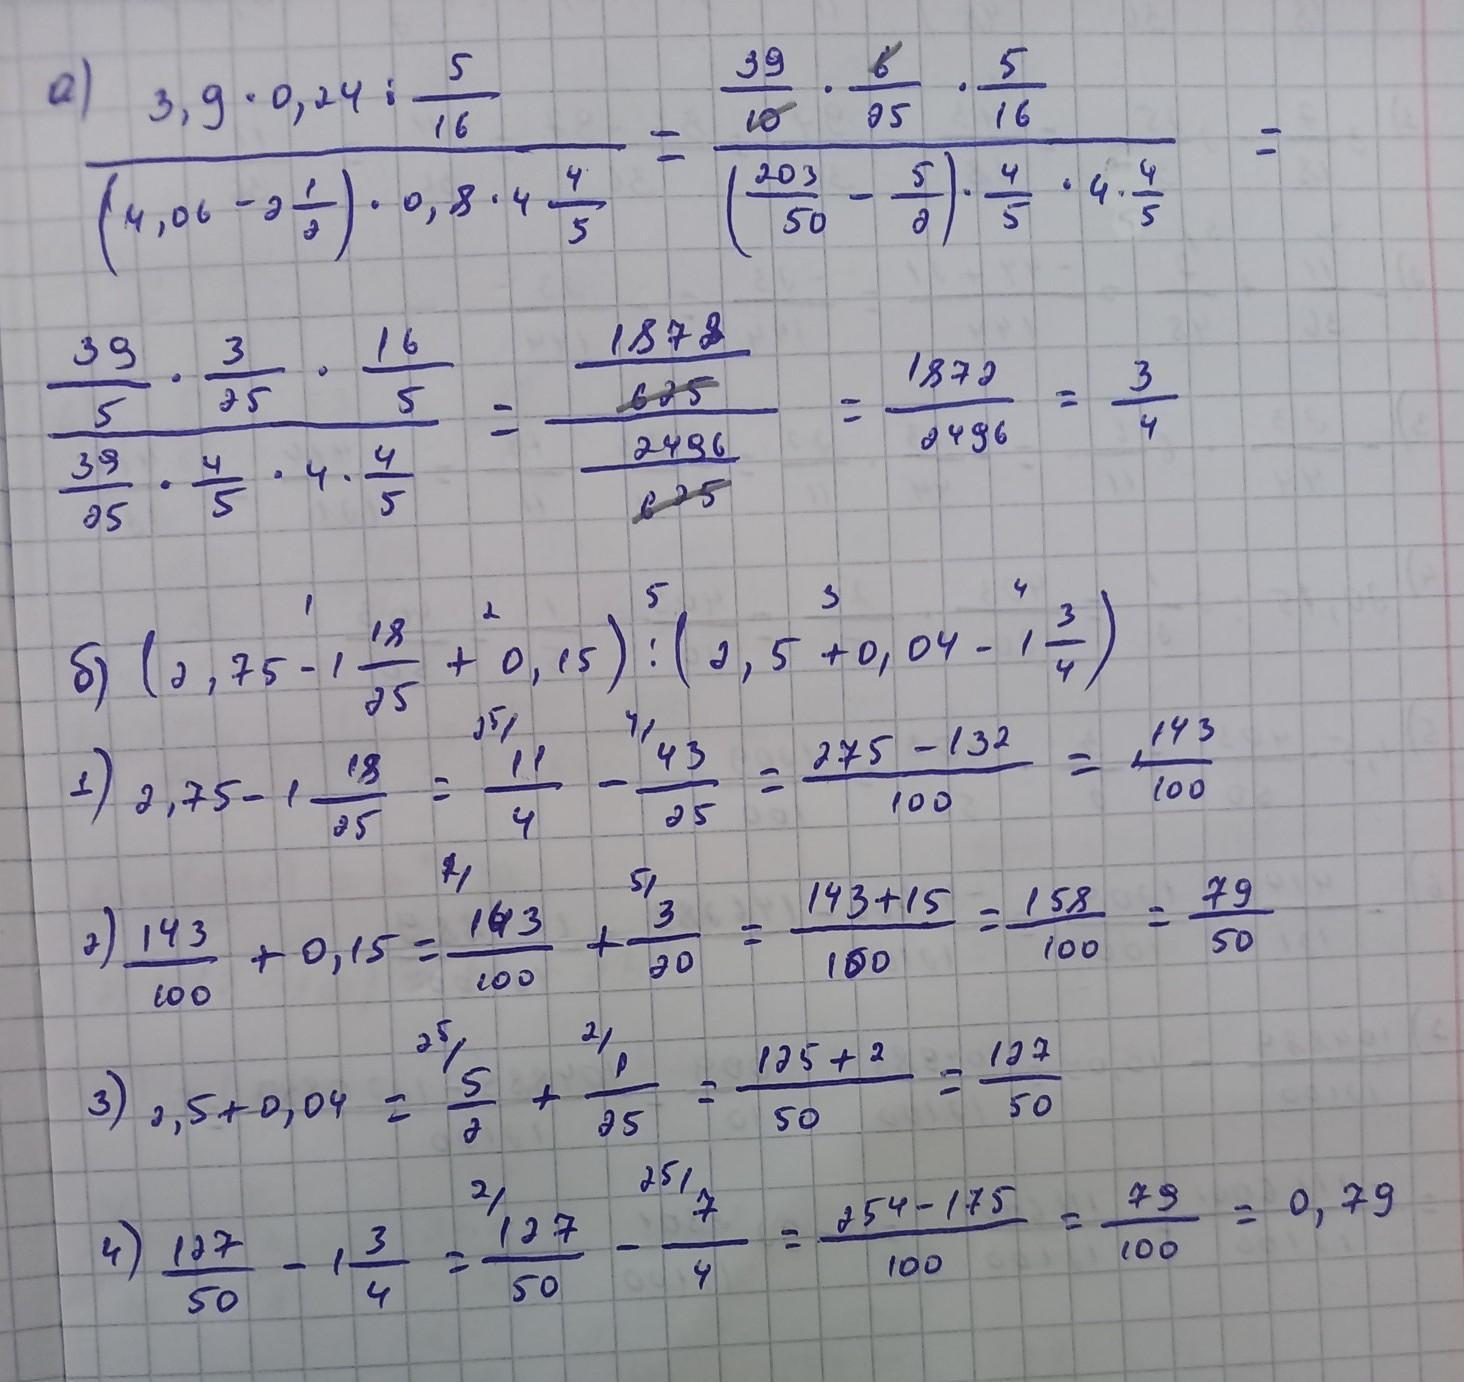 а) (3,9 · 0,24 : 5/16) / ((4,06 - 2 1/2) · 0,8 · 4 4/5) = (39/10 · 6/25 · 5/16) / ((203/50 - 5/2) · 4/5 · 4 · 4/5) =
(39/5 · 3/25 · 16/5) / (39/25 · 4/5 · 4 · 4/5) = (1872/625) / (2496/625) = 1872/2496 = 3/4
1 2 5 3 4
б) (2,75 - 1 18/25 + 0,15) : (2,5 + 0,04 - 1 3/4)
25/ 4/
1) 2,75 - 1 18/25 = 11/4 - 43/25 = (275 - 132)/100 = 143/100
5/
2) 143/100 + 0,15 = 143/100 + 3/20 = (143 + 15)/100 = 158/100 = 79/50
25/ 2/
3) 2,5 + 0,04 = 5/2 + 1/25 = (125 + 2)/50 = 127/50
2/ 25/
4) 127/50 - 1 3/4 = 127/50 - 7/4 = (254 - 175)/100 = 79/100 = 0,79